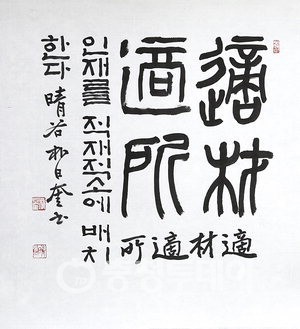 適材
適所
適材適所
인재를 적재적소에 배치
한다 晴谷 朴日奎 書